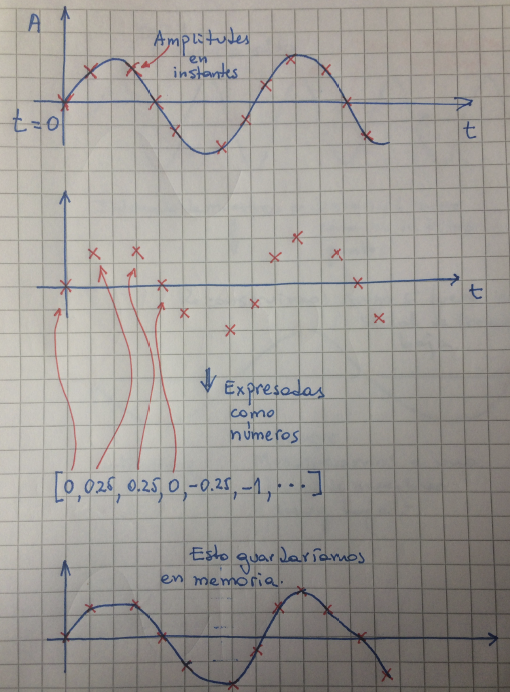 A
Amplitudes
en
instantes
t=0
t
t
Expresadas
como
números
[0, 0.25, 0.25, 0, -0.25, -1, ...]
Esto guardaríamos
en memoria.